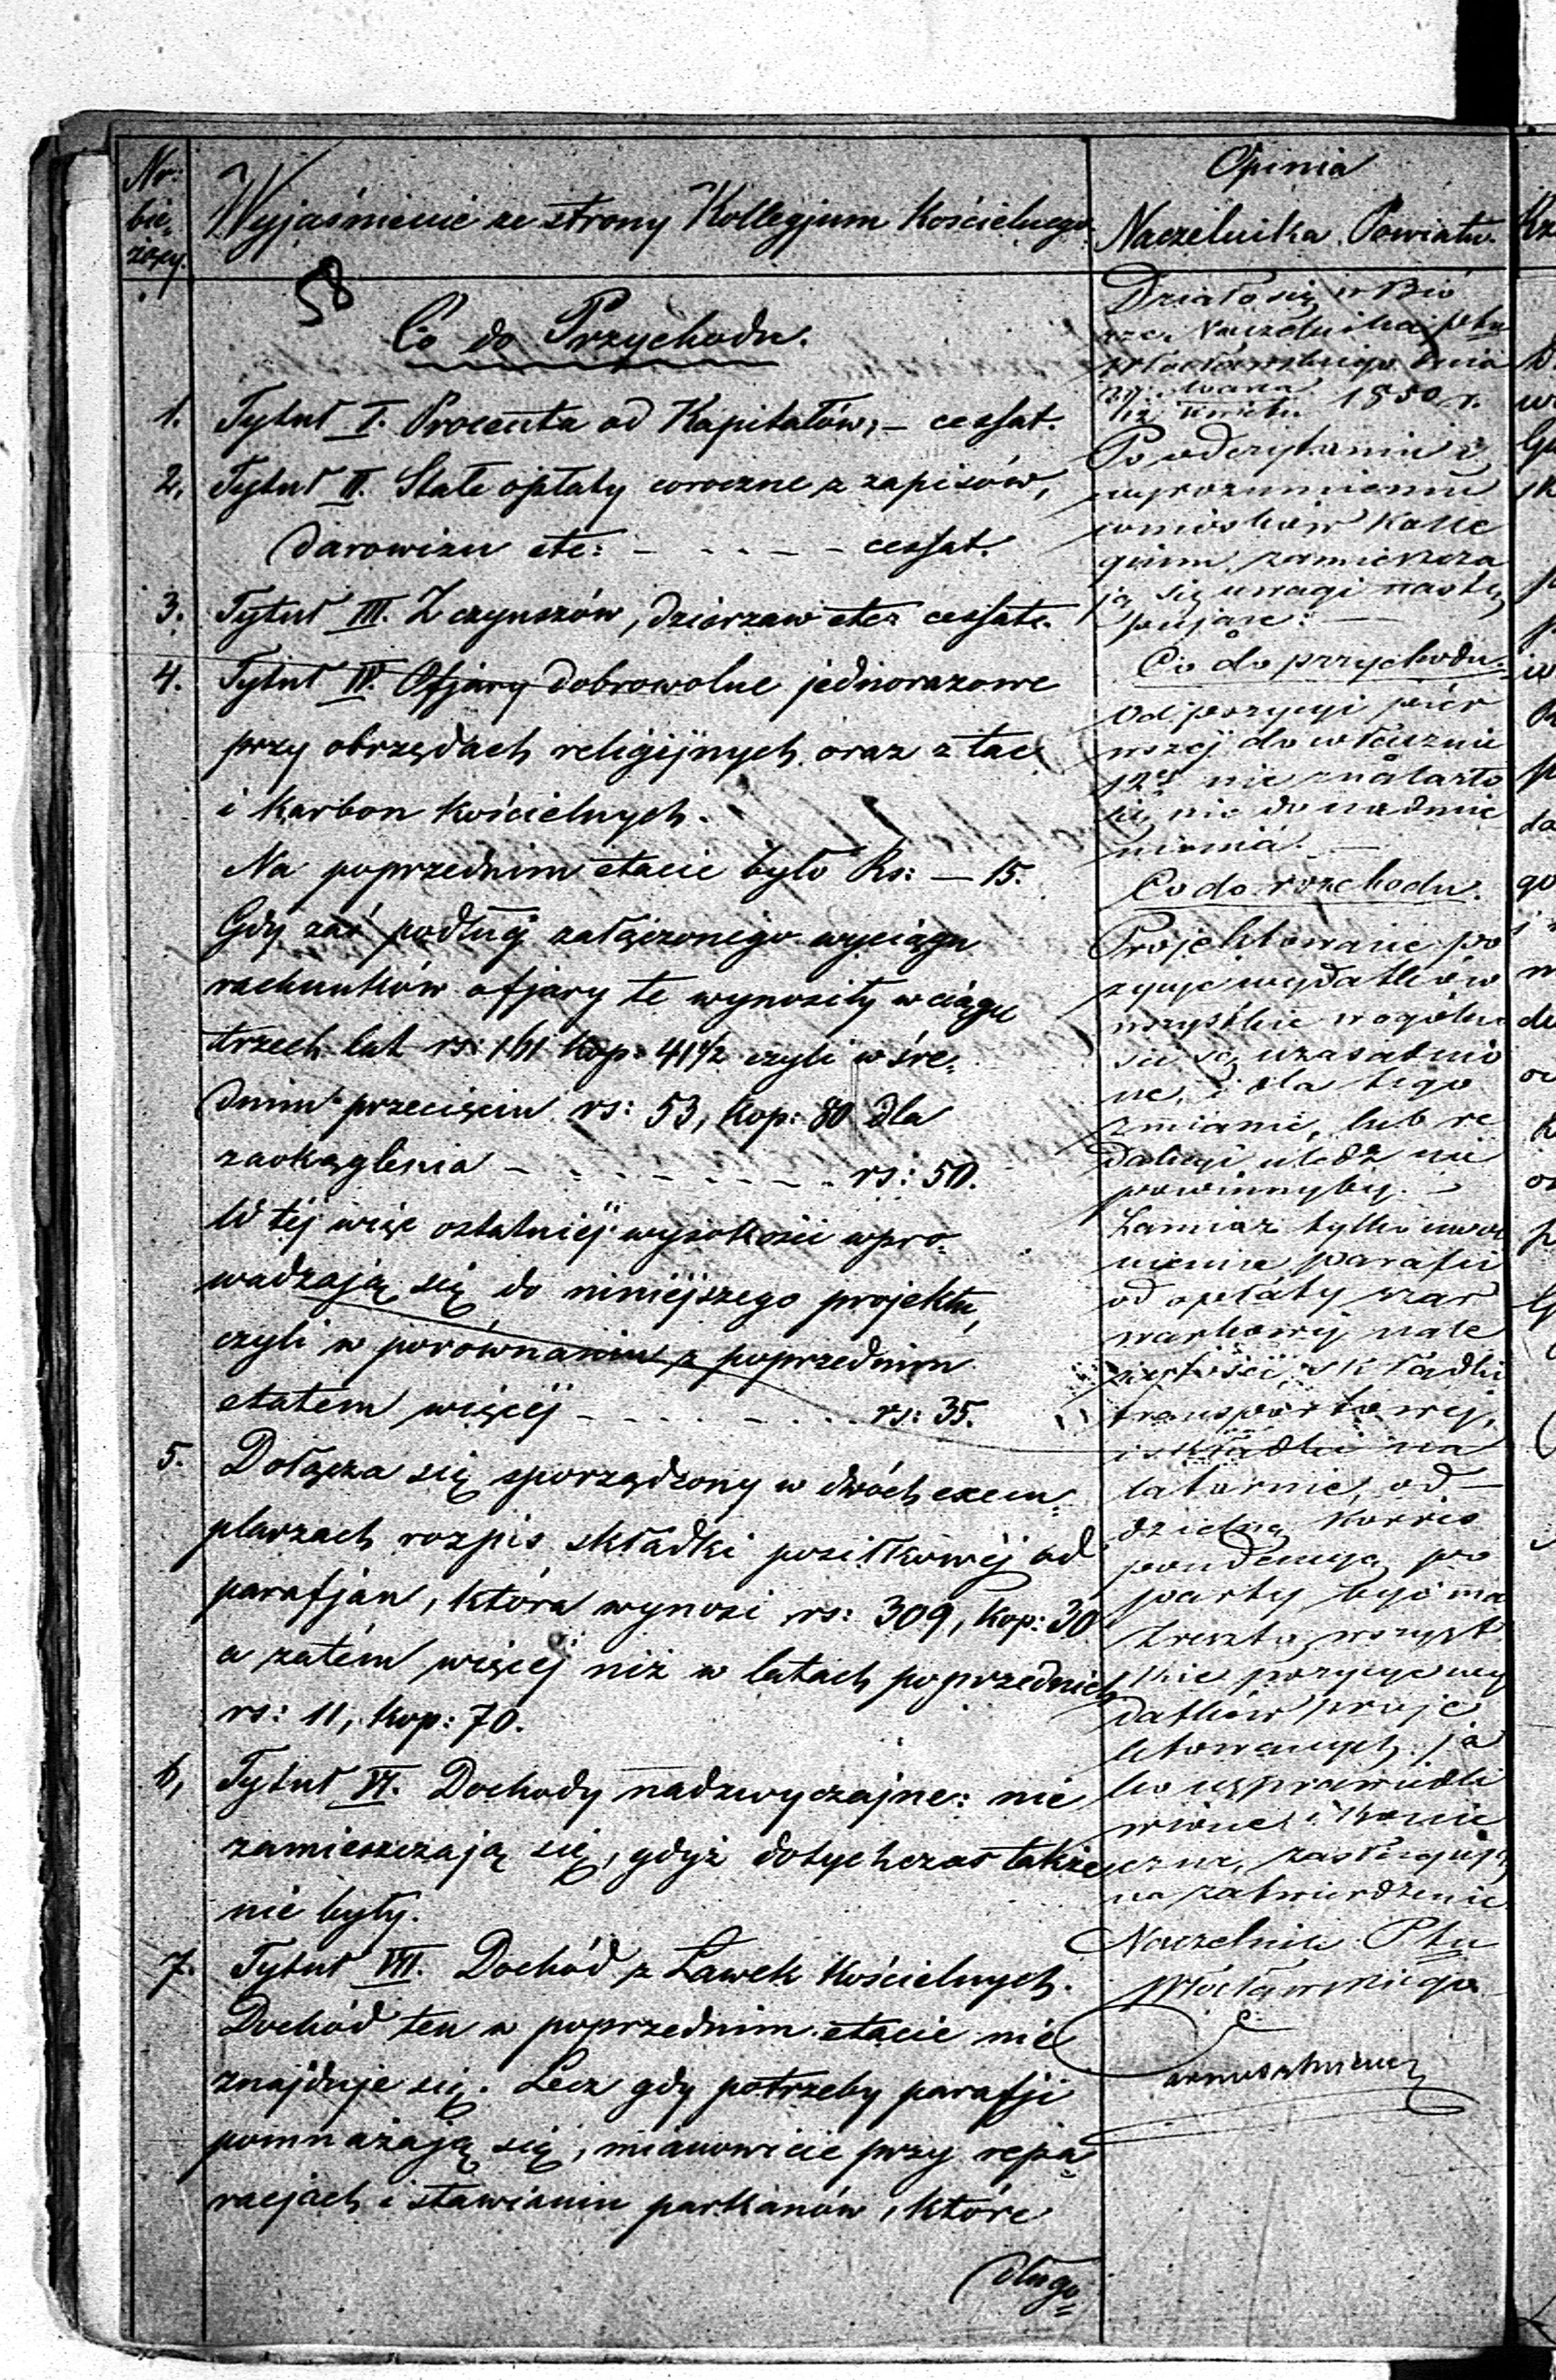 Nr:
bie,
żący.
Wyjaśnienie ze strony Kollegjum Kościelnego
58
Co do Przychodu.
1. Tytuł I. Procenta od Kapitałów, – cessat.
2. Tytuł II. Stałe opłaty coroczne z zapisów,
darowizn etc: – – – – – cessat.
3. Tytuł III. Z czynszów, dzierżaw etc: cessat.
4. Tytuł IV. Ofjary dobrowolne jednorazowe
przy obrzędach religijnych oraz z tac
i karbon kościelnych.
Na poprzednim etacie było Rs: – 15.
Gdy zaś podług załączonego wyciągu
rachunków ofjary te wynosiły w ciągu
trzech lat rs: 161 kop: 41½ czyli w śre,
dnim przecięciu rs: 53, kop: 80 dla
zaokąglenia – – – – – – – rs: 50.
W tej więc ostatniéj wysokości wpro,
wadzają się do niniéjszego projektu,
czyli w porównaniu z poprzednim
etatem więcéj – – – – – – rs: 35.
5. Dołącza się sporządzony w dwóch exem,
plarzach rozpis składki posiłkowéj od
parafjan, która wynosi rs: 309, kop: 30
a zatém więcéj niż w latach poprzednich
rs: 11, kop: 70.
6, Tytuł VI. Dochody nadzwyczajne: nie
zamieszczają się, gdyż dotychczas także
nie były.
7. Tytuł VII. Dochód z Ławek Kościelnych.
Dochód ten w poprzednim etacie nie
znajduje się. Lecz gdy potrzeby parafji
pomnażają się, mianowicie przy repa=
racjach i stawianiu parkanów, które
długo=
Opinia
Naczelnika Powiatu.
Działo się w Bió
rze Naczelnika Ptu
Włocławskiego dnia
1850 r.
Po odczytaniu i
wyrozumieniu
wniosków Kolle
gium, zamieszcza
ją się uwagi nastę
pujące: —
Co do przychodu.
Od pozycyi pier
wszéj do włącznie
12éj nie znalazło
się nic do nadmie
nienia. —
Co do rozchodu.
Projektowane po
zycye wydatków
wszystkie w ogólno
ści są uzasadnio
ne, i dla tego
zmianie, lub re
dukcyi uledz nie
powinnyby. —
Zamiar tylko uwol
nienia parafii
od opłaty szar
warkowéj, nale
żytości, składki
transportowéj,
i składki na
latarnie, od –
dzielną korres
pondencyą po
party być ma
Zresztą wszyst
kie pozycye wy
datków proje
ktowanych, ja
ko usprawiedli
wione i konie
czne, zasługują
na zatwierdzenie
Naczelnik Ptu
Włocławskiego